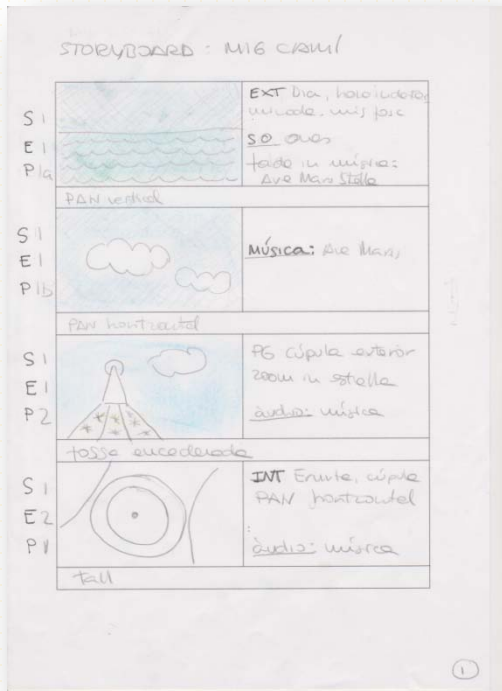 STORYBOARD: MIG CAMÍ
S1
E1
P1a
EXT Dia, hora indeter
minada, mig fosc
SO ones
fade in música:
Ave Maris Stella
PAN vertical
S1
E1
P1b
MÚSICA: Ave Maris
PAN horitzontal
S1
E1
P2
PG cúpula exterior
zoom in stella
àudio: música
fosa encadenada
S1
E2
P1
INT Ermita, cúpula
PAN horitzontal
àudio: música
tall
1